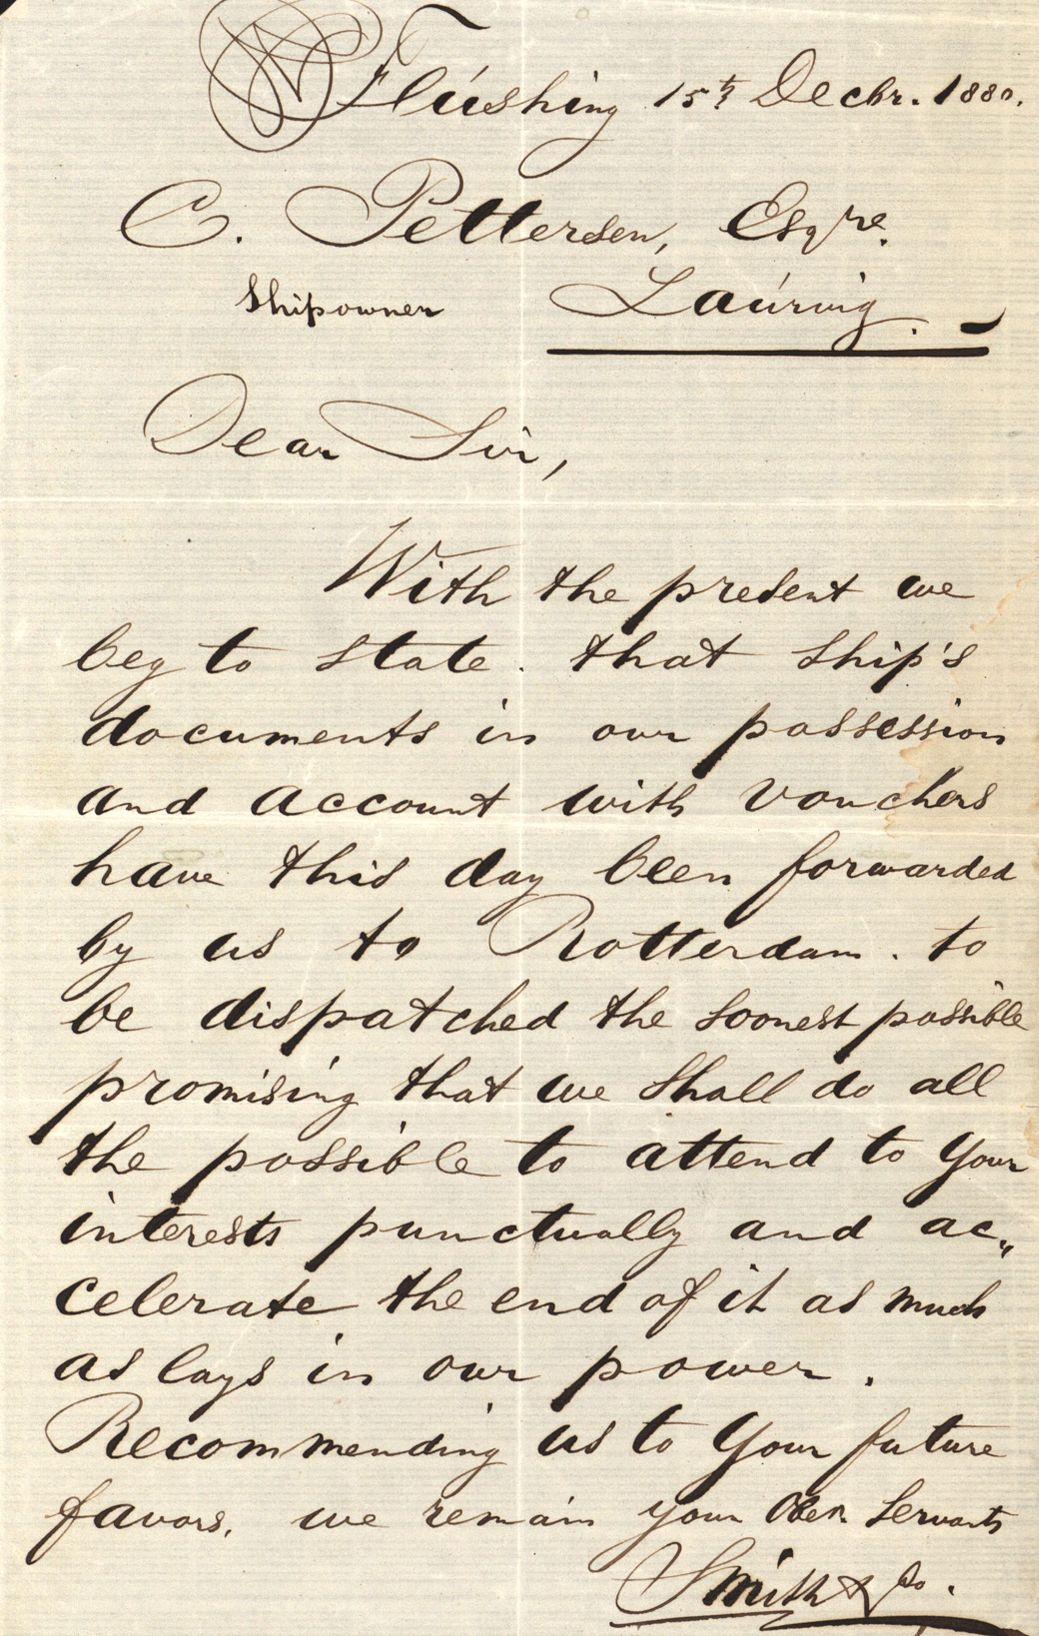 Flushing 15th Decbr. 1880.
C. Pettersen, Esqre.
Shipowner Laurvig.
Dear Sir,
With the present we
beg to state. that ship's
documents in our possession
and account with vouchers
have this day been forwarded
by us to Rotterdam. to
be dispatched the soonest possible
promising that we shall do all
the possible to attend to Your
interests punctually and ac„
celerate the end of it as much
as lays in our power.
Recommending us to Your future
favors, we remain your Obed. Servants
Smith & Co.